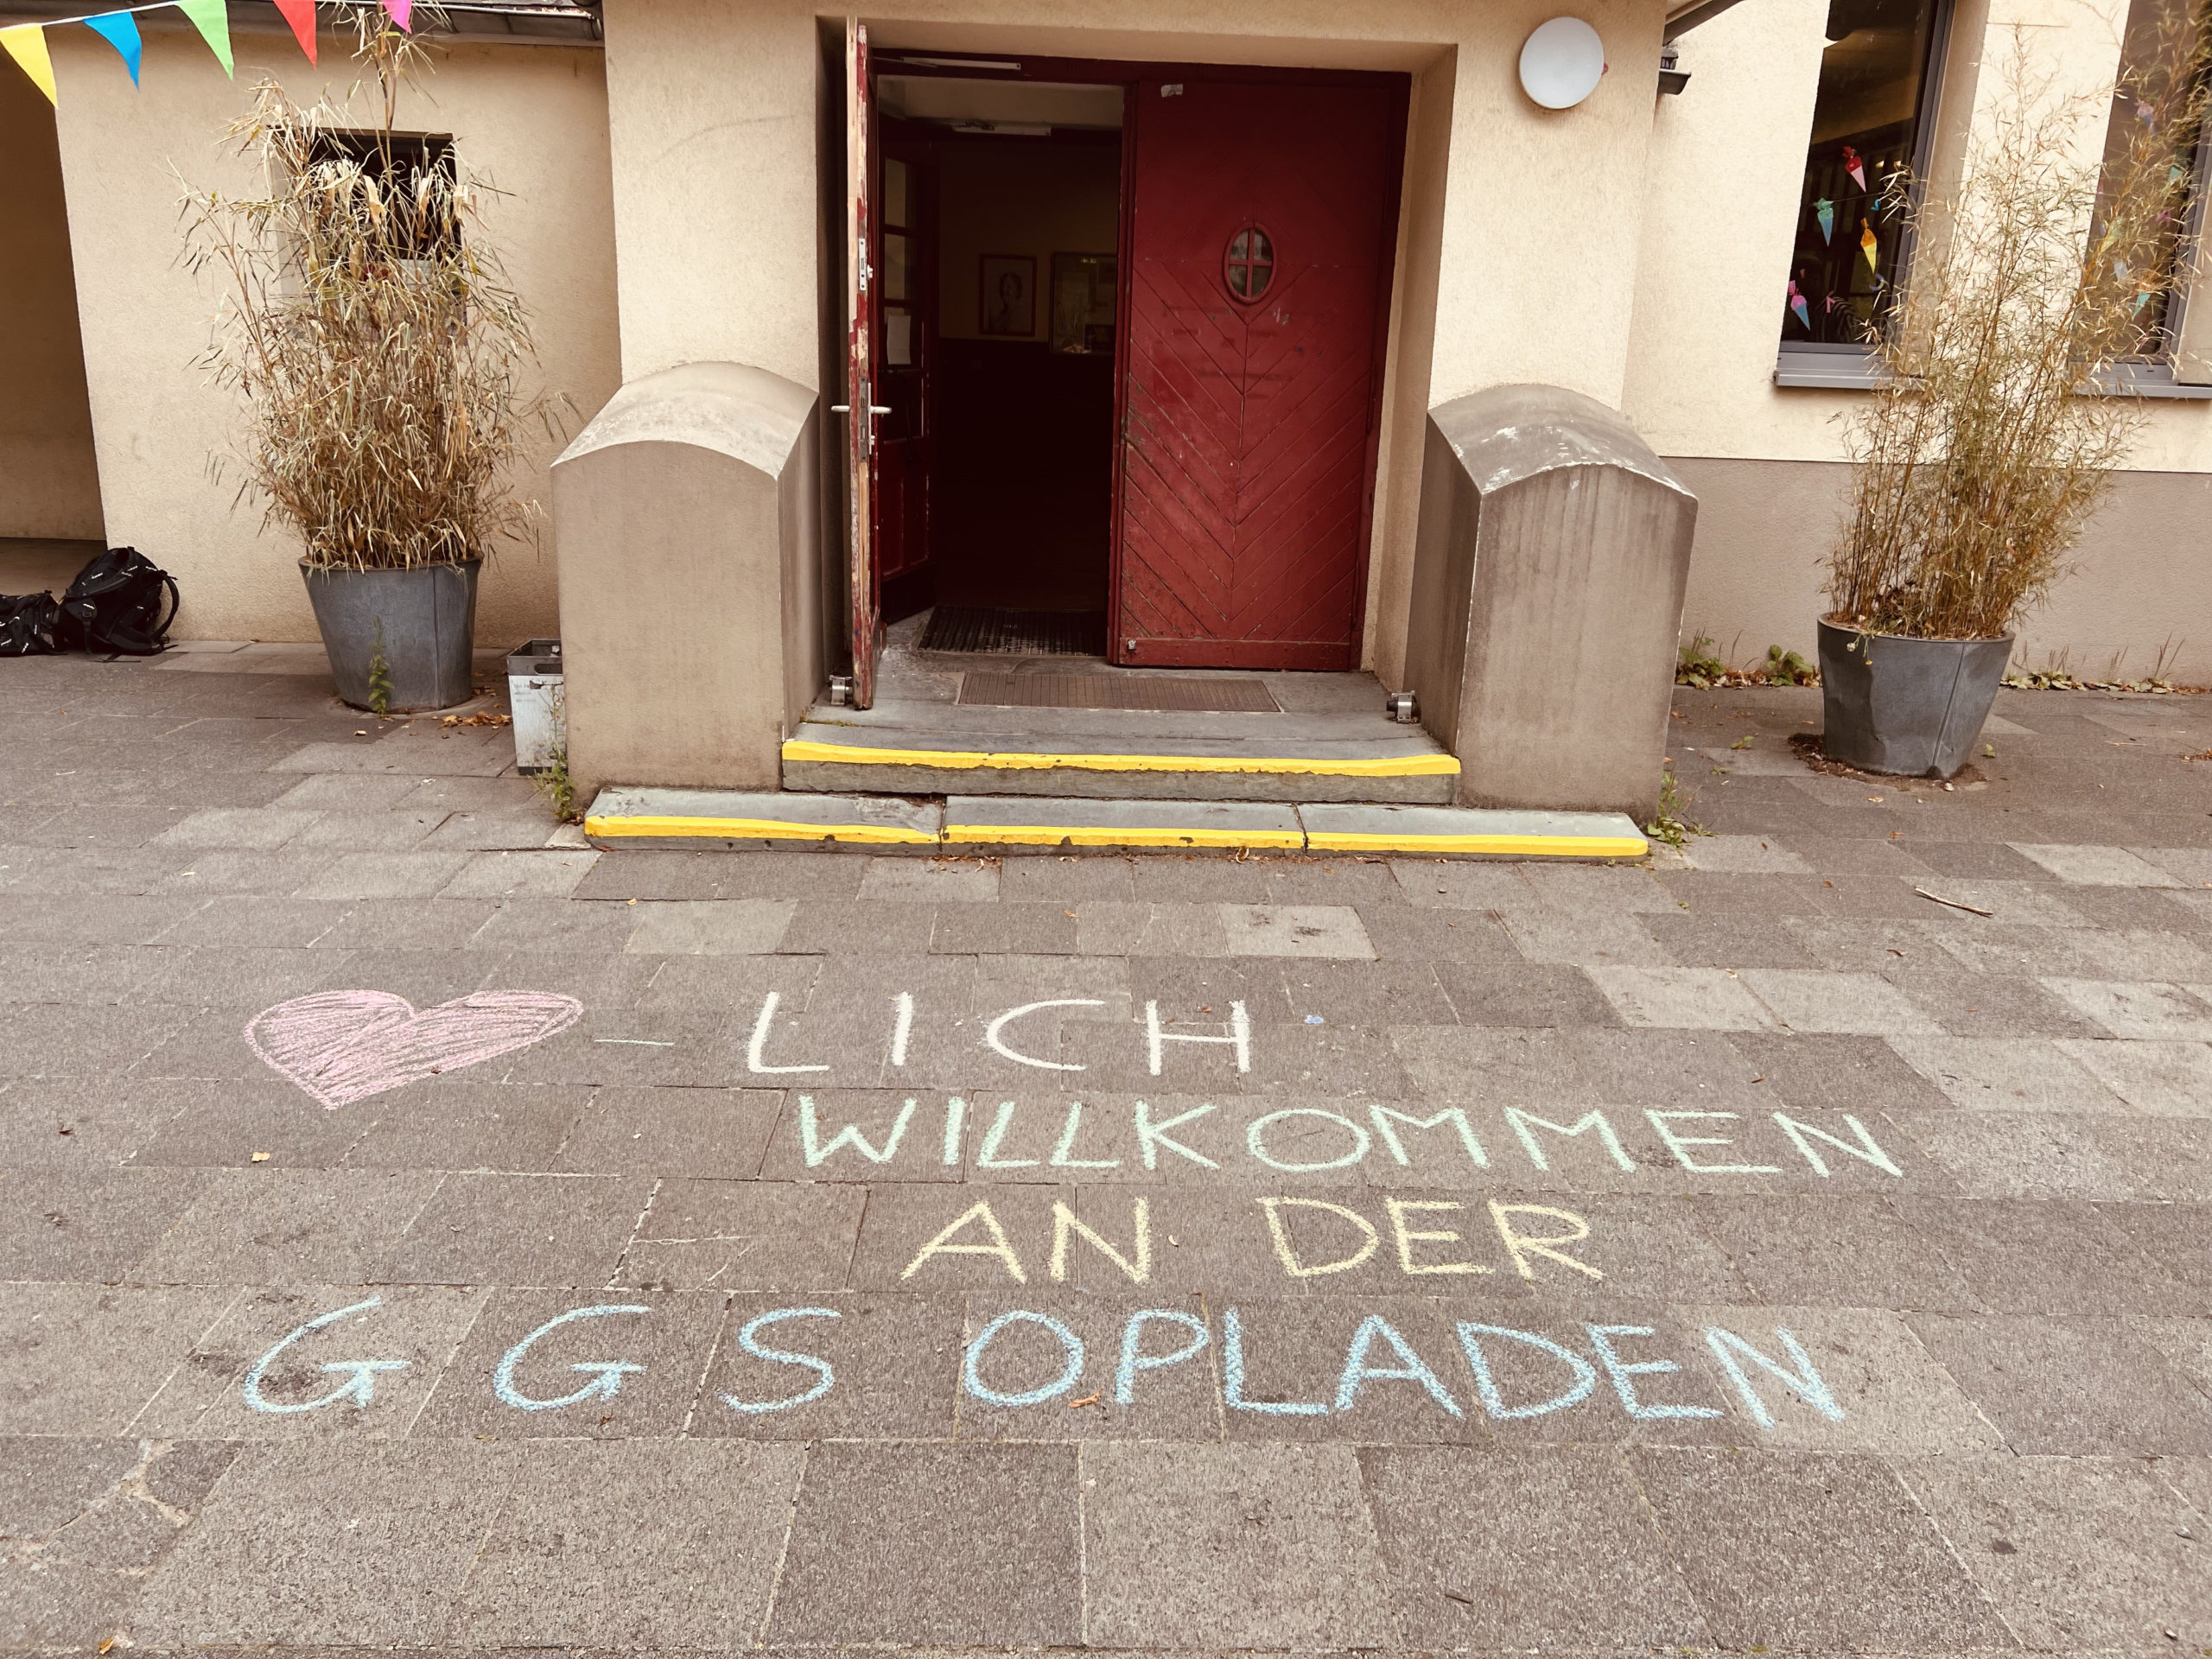 - LICH
WILLKOMMEN
AN DER
GGS OPLADEN